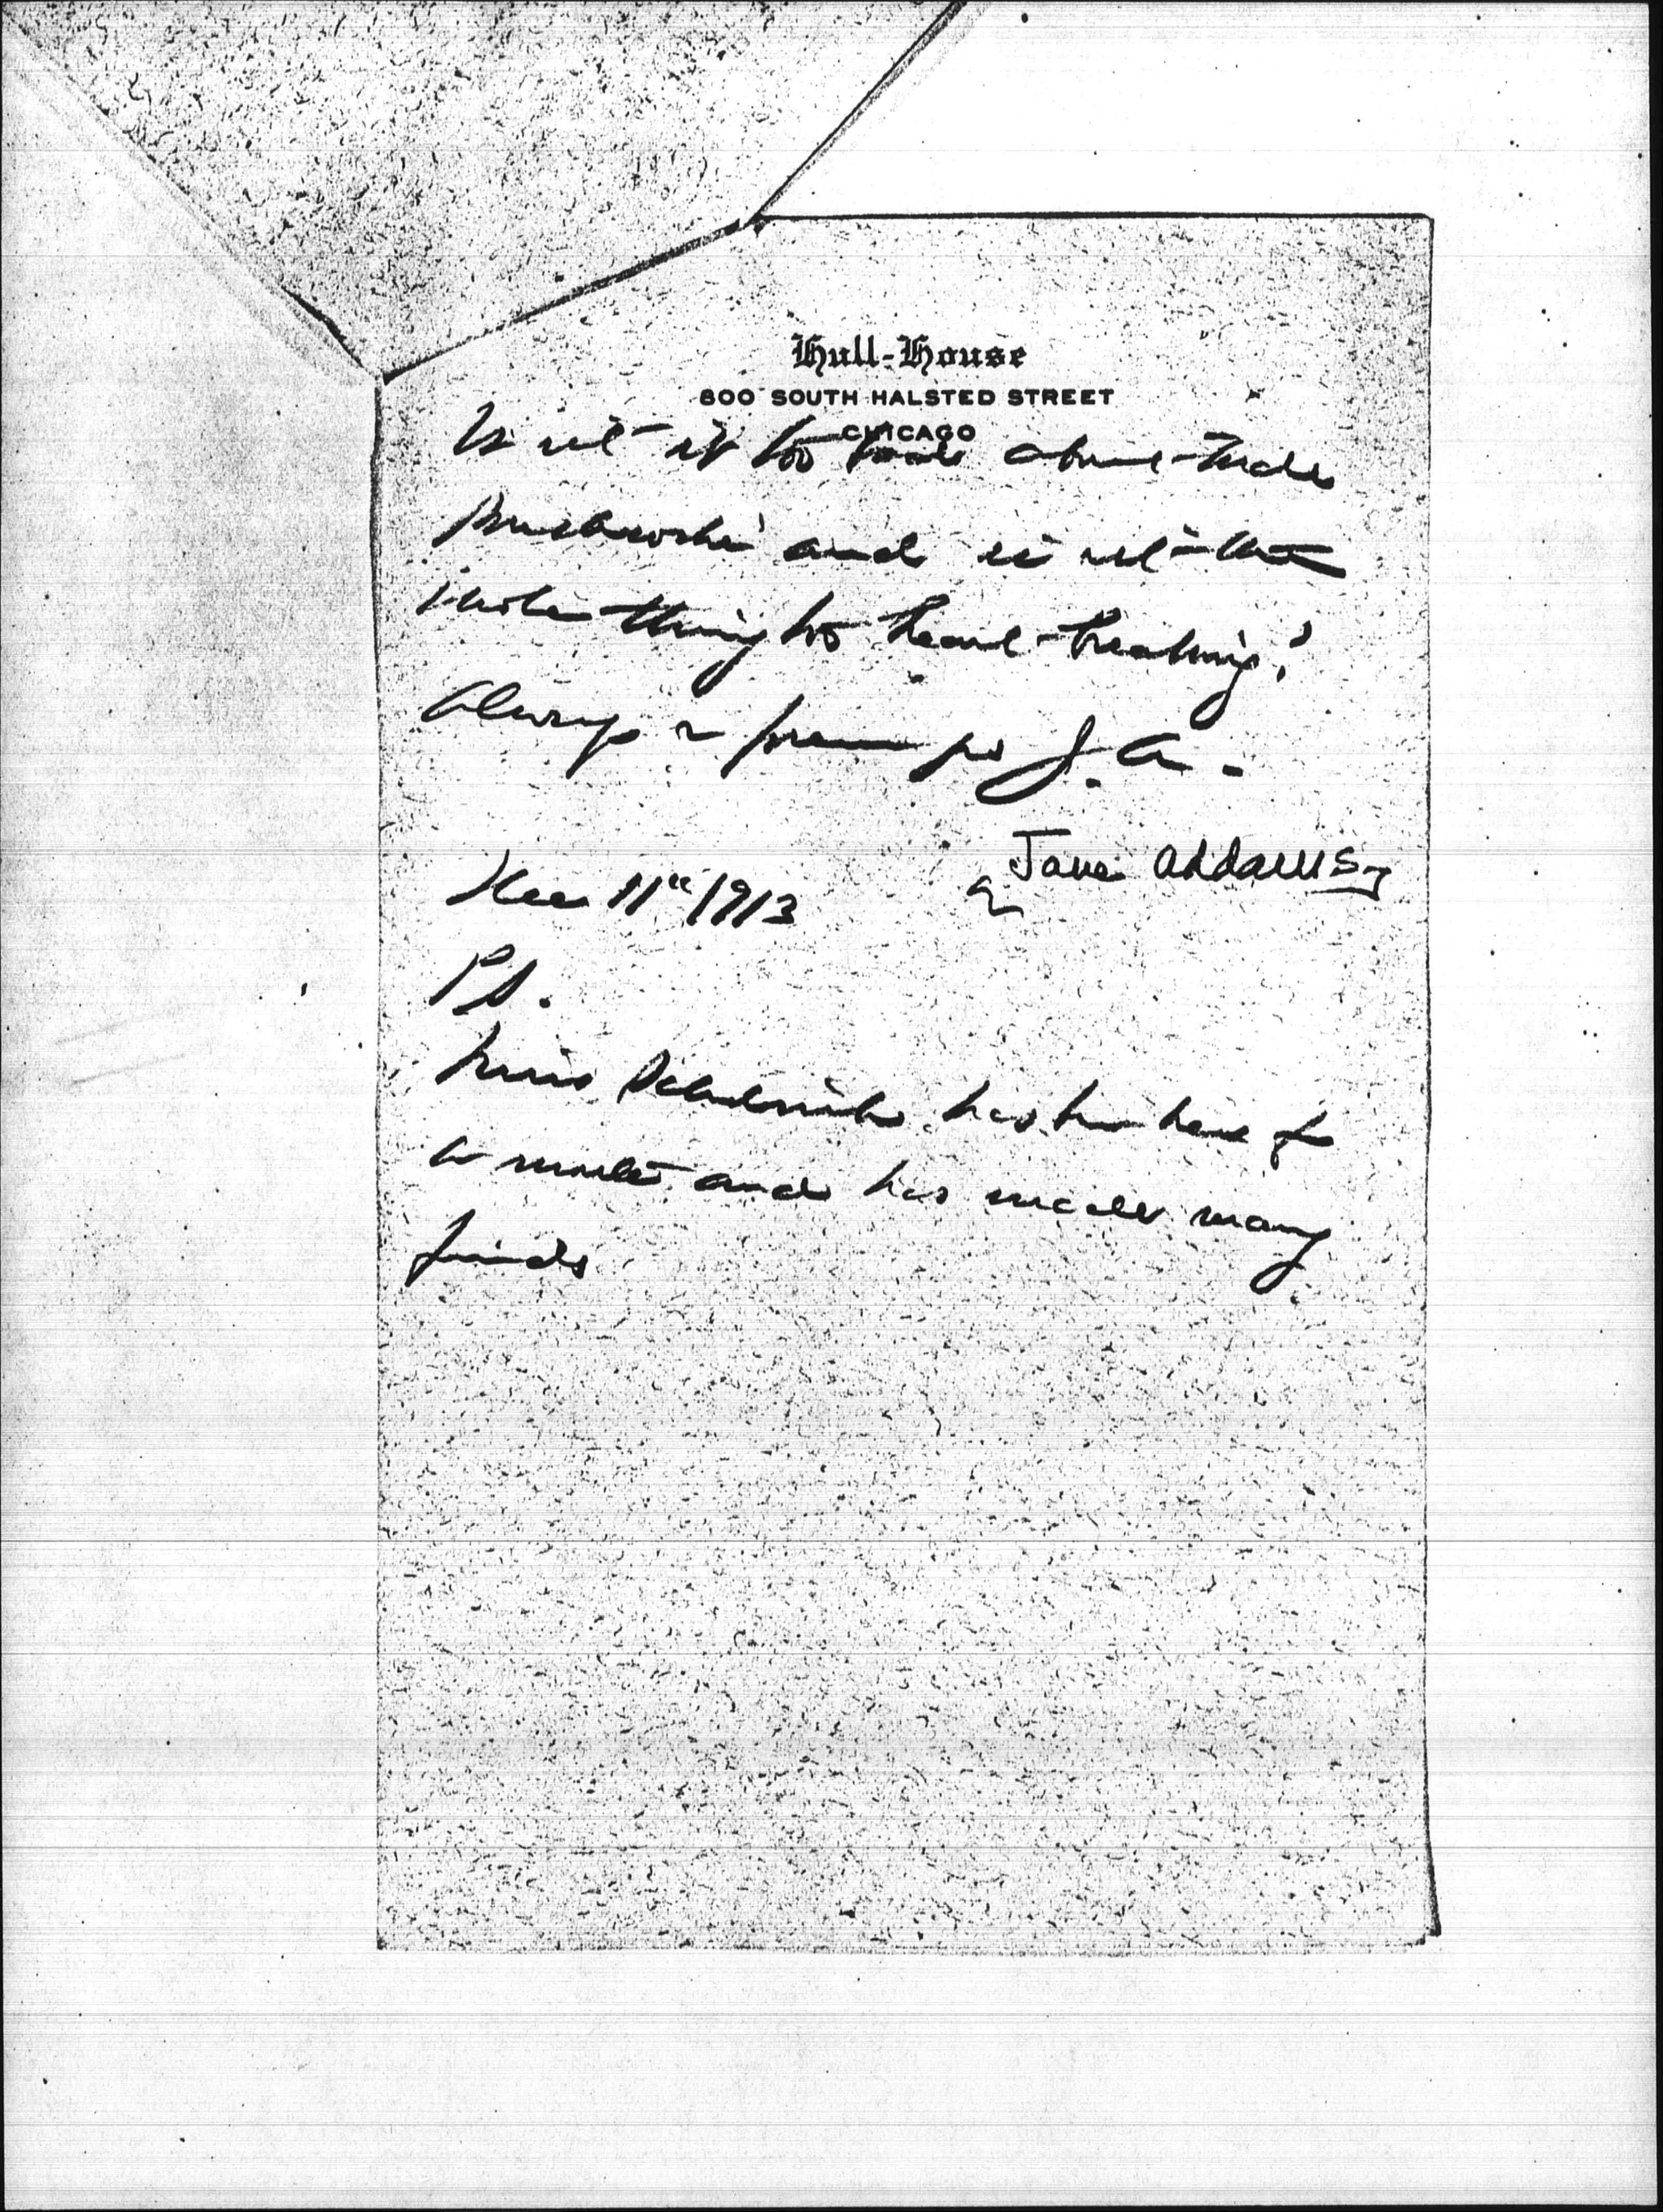 Hull-House
800 SOUTH HALSTED STREET
CHICAGO
Is not it too bad about
and is not the
whole thing too heart-breaking?
Always yrs J. A.
Jane Addams
Dec 11" 1913
P.S.
Miss has been here for
a month and has made many
friends